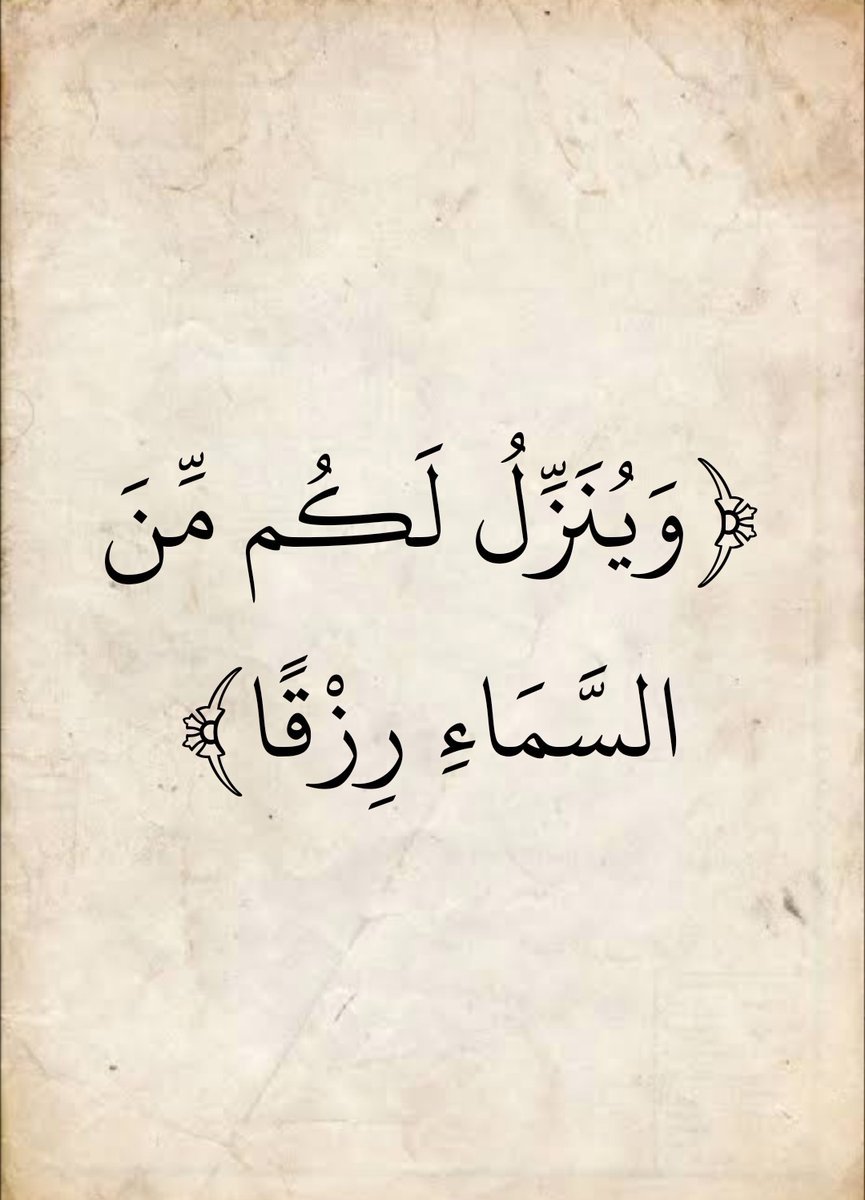 ﴿وَيُنَزِّلُ لَكُم مِّنَ
السَّمَاءِ رِزْقًا﴾